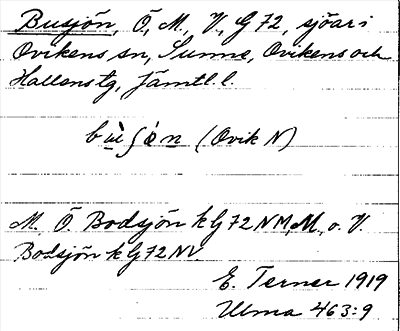 Busjön, Ö, M., V., G 72, sjöar i
Ovikens sn, Sunne, Ovikens och
Hallens tg, Jämtl. l.
(Ovik N)
M. Ö Bodsjön k G 72 NM, M. o. V.
Bodsjön k G 72 NV.
E. Terner 1919
Ulma 463:9